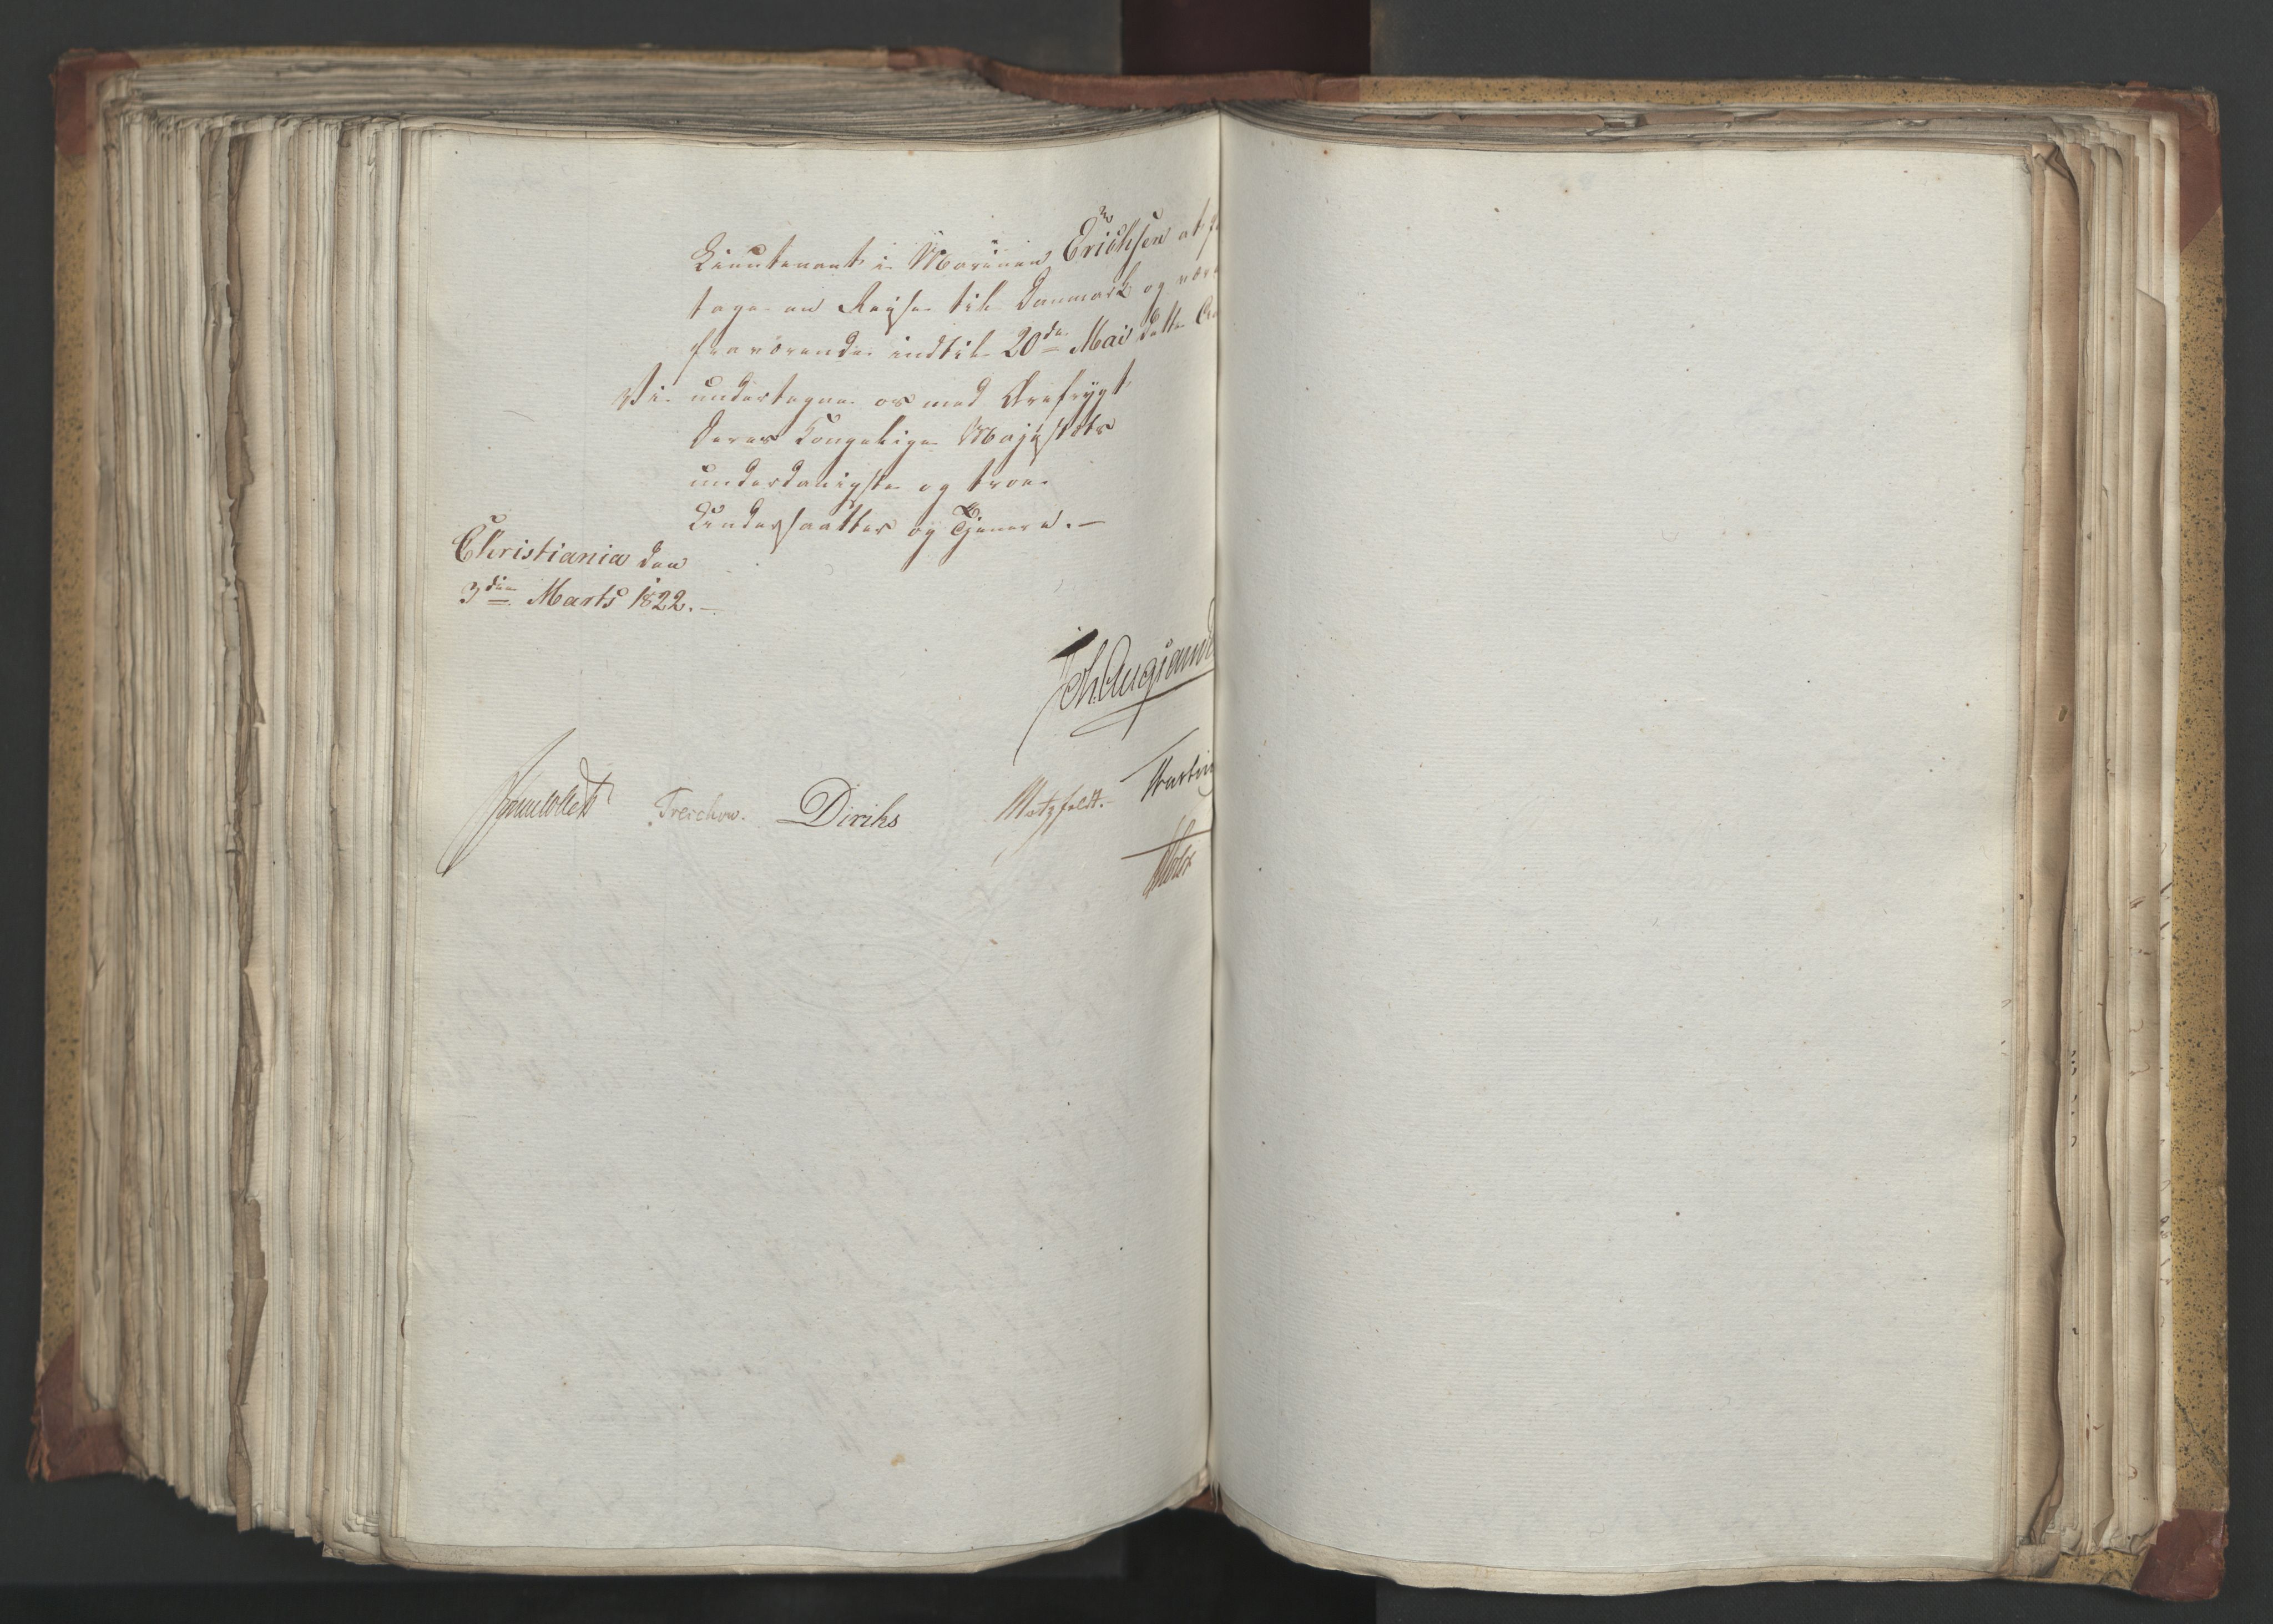 Lieutenant i Marinen Erichsen at
tage en Reyse til Danmark og være
fraværende indtil 20de Mai dette
Vi undertegne os med Ærefrygt
Deres Kongelige Majestæts
underdanigste og troe
Undersaatter og Tjenere. —
Christiania den
3die Marts 1822. —
Joh. Aug Sand
Jonas Collett Treschow. Diriks Motzfeldt.
Holst